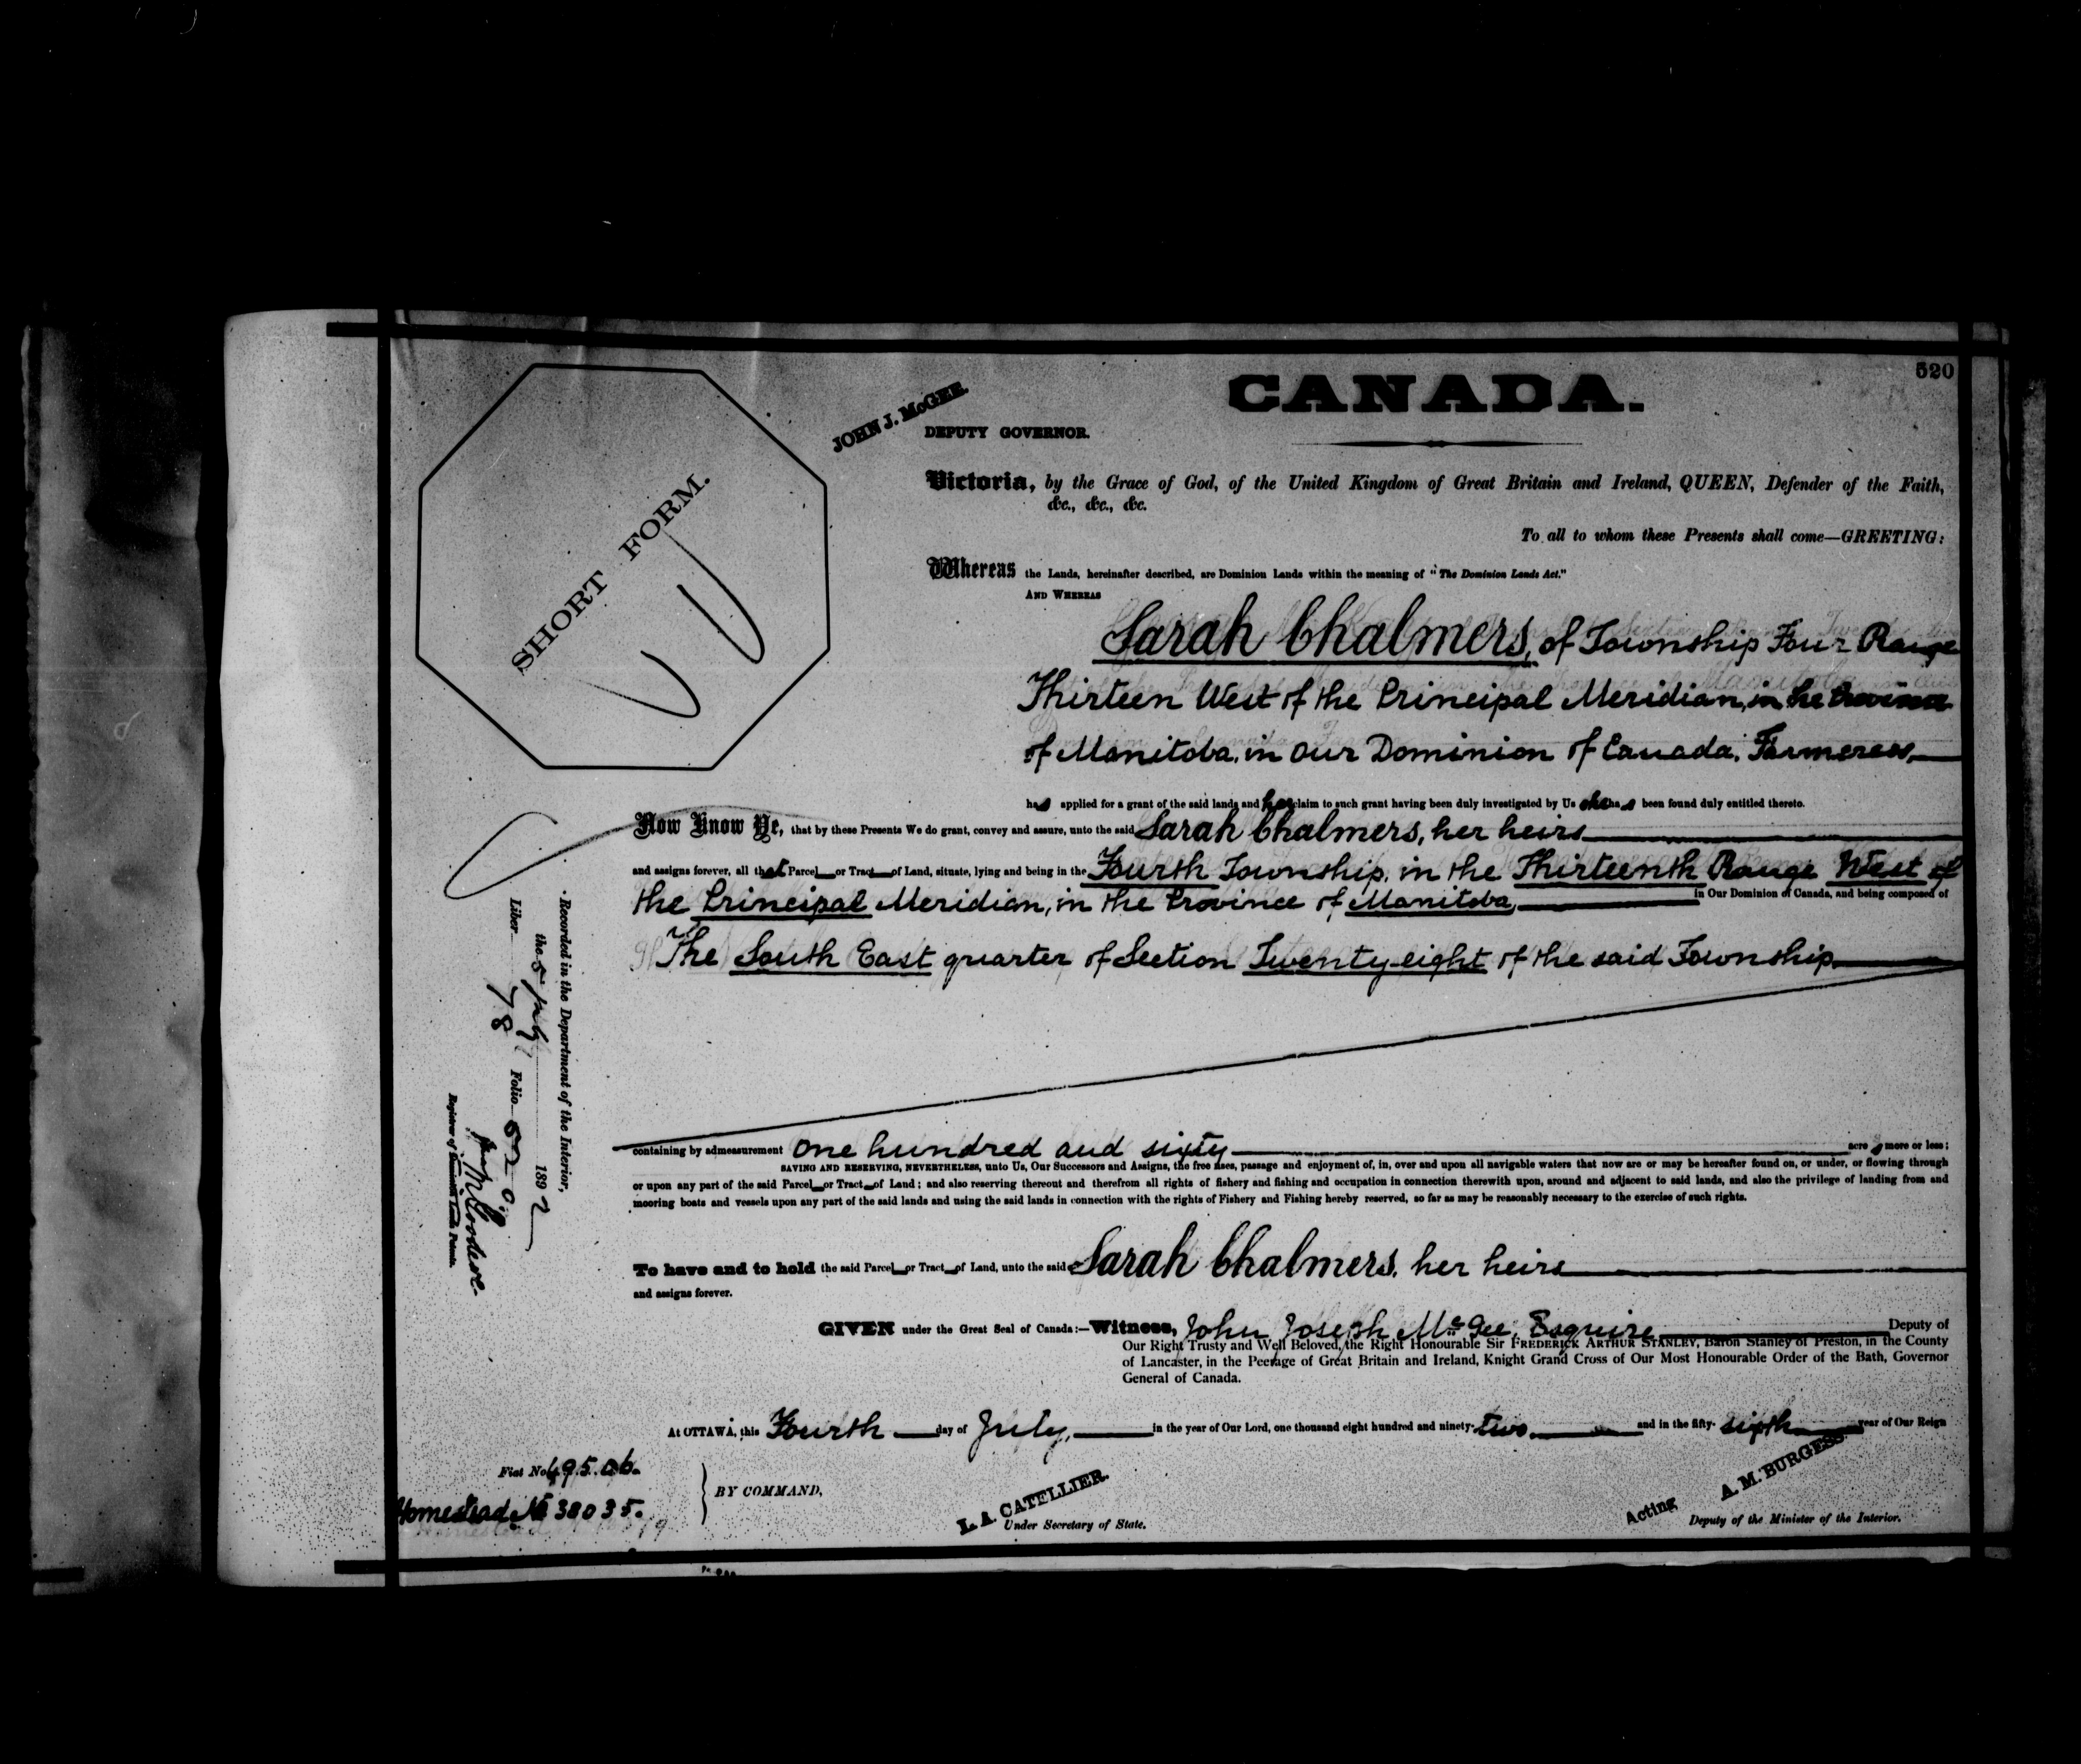 520
CANADA.
JOHN J. McGEE.
DEPUTY GOVERNOR.
SHORT FORM.
Victoria, by the Grace of God, of the United Kingdom of Great Britain and Ireland, QUEEN, Defender of the Faith,
&c., &c., &c.
To all to whom these Presents shall come—GREETING:
Whereas the Lands, hereinafter described, are Dominion Lands within the meaning of "The Dominion Lands Act."
AND WHEREAS
Sarah Chalmers, of Township Four Range
Thirteen West of the Principal Meridian, in the Province
of Manitoba, in Our Dominion of Canada, Farmeress,
has applied for a grant of the said lands and her claim to such grant having been duly investigated by Us she has been found duly entitled thereto.
Now Know Ye, that by these Presents We do grant, convey and assure, unto the said Sarah Chalmers, her heirs
and assigns forever, all that Parcel or Tract of Land, situate, lying and being in the Fourth Township, in the Thirteenth Range West of
the Principal Meridian, in the Province of Manitoba, in Our Dominion of Canada, and being composed of
The South East quarter of Section Twenty-eight of the said Township
containing by admeasurement one hundred and sixty acres more or less;
SAVING AND RESERVING, NEVERTHELESS, unto Us, Our Successors and Assigns, the free uses, passage and enjoyment of, in, over and upon all navigable waters that now are or may be hereafter found on, or under, or flowing through
or upon any part of the said Parcel or Tract of Land; and also reserving thereout and therefrom all rights of fishery and fishing and occupation in connection therewith upon, around and adjacent to said lands, and also the privilege of landing from and
mooring boats and vessels upon any part of the said lands and using the said lands in connection with the rights of Fishery and Fishing hereby reserved, so far as may be reasonably necessary to the exercise of such rights.
To have and to hold the said Parcel or Tract of Land, unto the said Sarah Chalmers, her heirs
and assigns forever.
GIVEN under the Great Seal of Canada:—Witness, John Joseph McGee, Esquire Deputy of
Our Right Trusty and Well Beloved, the Right Honourable Sir FREDERICK ARTHUR STANLEY, Baron Stanley of Preston, in the County
of Lancaster, in the Peerage of Great Britain and Ireland, Knight Grand Cross of Our Most Honourable Order of the Bath, Governor
General of Canada.
At OTTAWA, this Fourth day of July, in the year of Our Lord, one thousand eight hundred and ninety-two and in the fifty-sixth year of Our Reign
Recorded in the Department of the Interior,
the 5 July 1892
Liber 78 Folio 520
Registrar of Dominion Lands Patents.
Fiat No. 49506.
Homestead No 38035.
BY COMMAND,
L. A. CATELLIER.
Under Secretary of State.
A. M. BURGESS
Acting
Deputy of the Minister of the Interior.